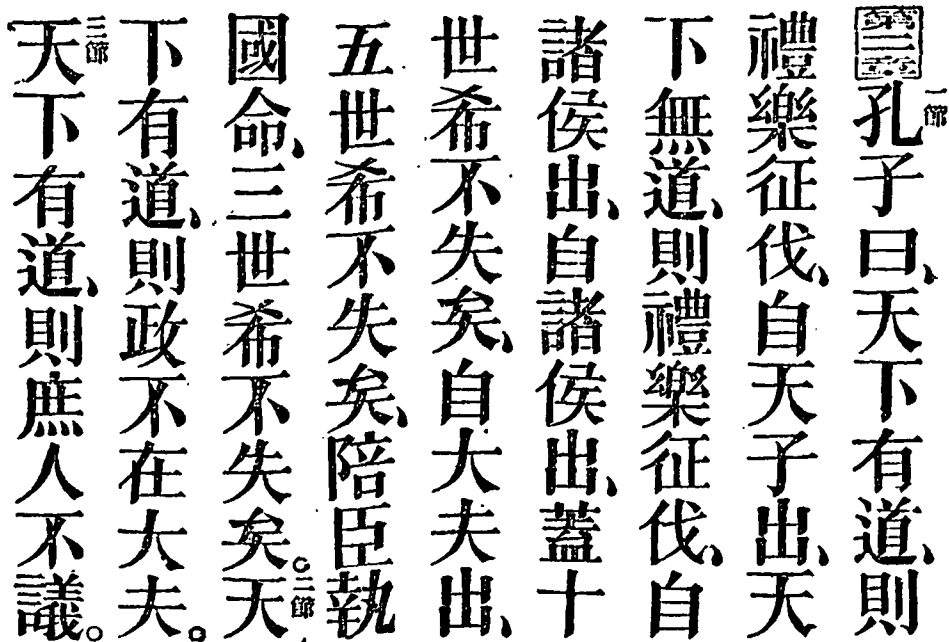 第二章 一節 孔子曰、天下有道、則
禮樂征伐、自天子出、天
下無道、則禮樂征伐、自
諸侯出、自諸侯出、蓋十
世希不失矣、自大夫出、
五世希不失矣、陪臣執
國命、三世希不失矣。二節 天
下有道、則政不在大夫。
三節 天下有道、則庶人不議。